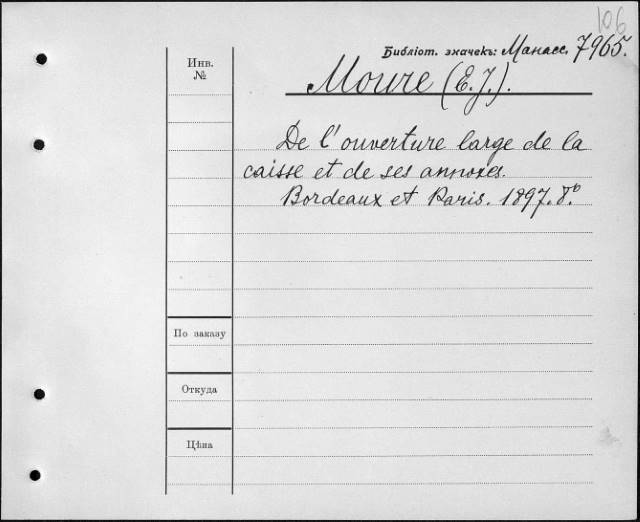 106
Библіот. значекъ: Манасс. 7965.
Инв. №
Moure (E. J.).
De l'ouverture large de la
caisse et de ses annexes.
Bordeaux et Paris. 1897. 8º.
По заказу
Откуда
Цѣна